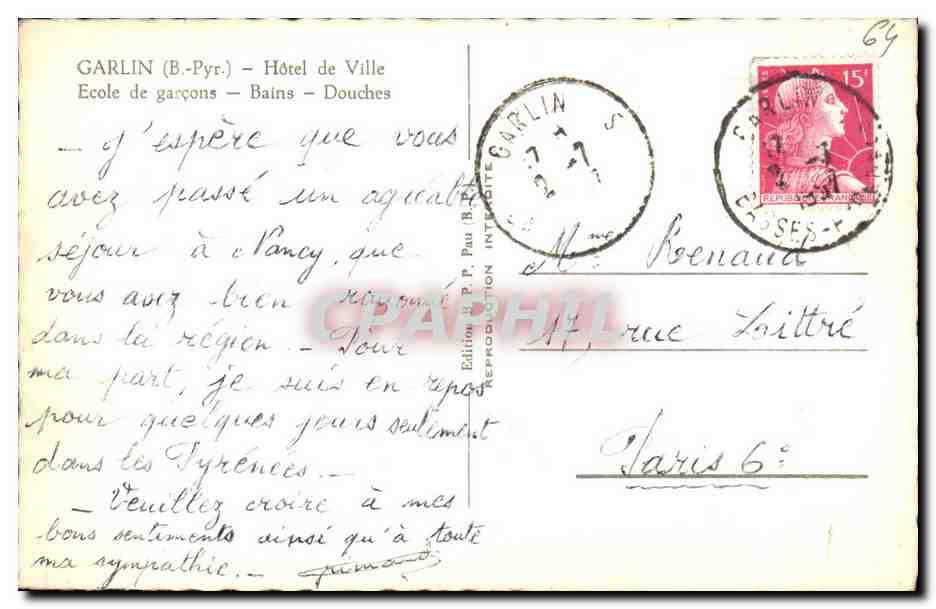 64
GARLIN (B.-Pyr.) – Hôtel de Ville
Ecole de garçons – Bains – Douches
– J'espère que vous
avez passé un agréable
séjour à Nancy, que
vous avez bien rayonné
dans la région – Pour
ma part, je suis en repos
pour quelques jours seulement
dans les Pyrénées. –
– Veuillez croire à mes
bons sentiments ainsi qu'à toute
ma sympathie. –
Edition B. P. P. Pau (B. P.)
REPRODUCTION INTERDITE
GARLIN
15F
REPUBLIQUE FRANÇAISE
GARLIN
BASSES-PYRENEES
Mme Renaud
17, rue Littré
Paris 6e
CPAPHIL